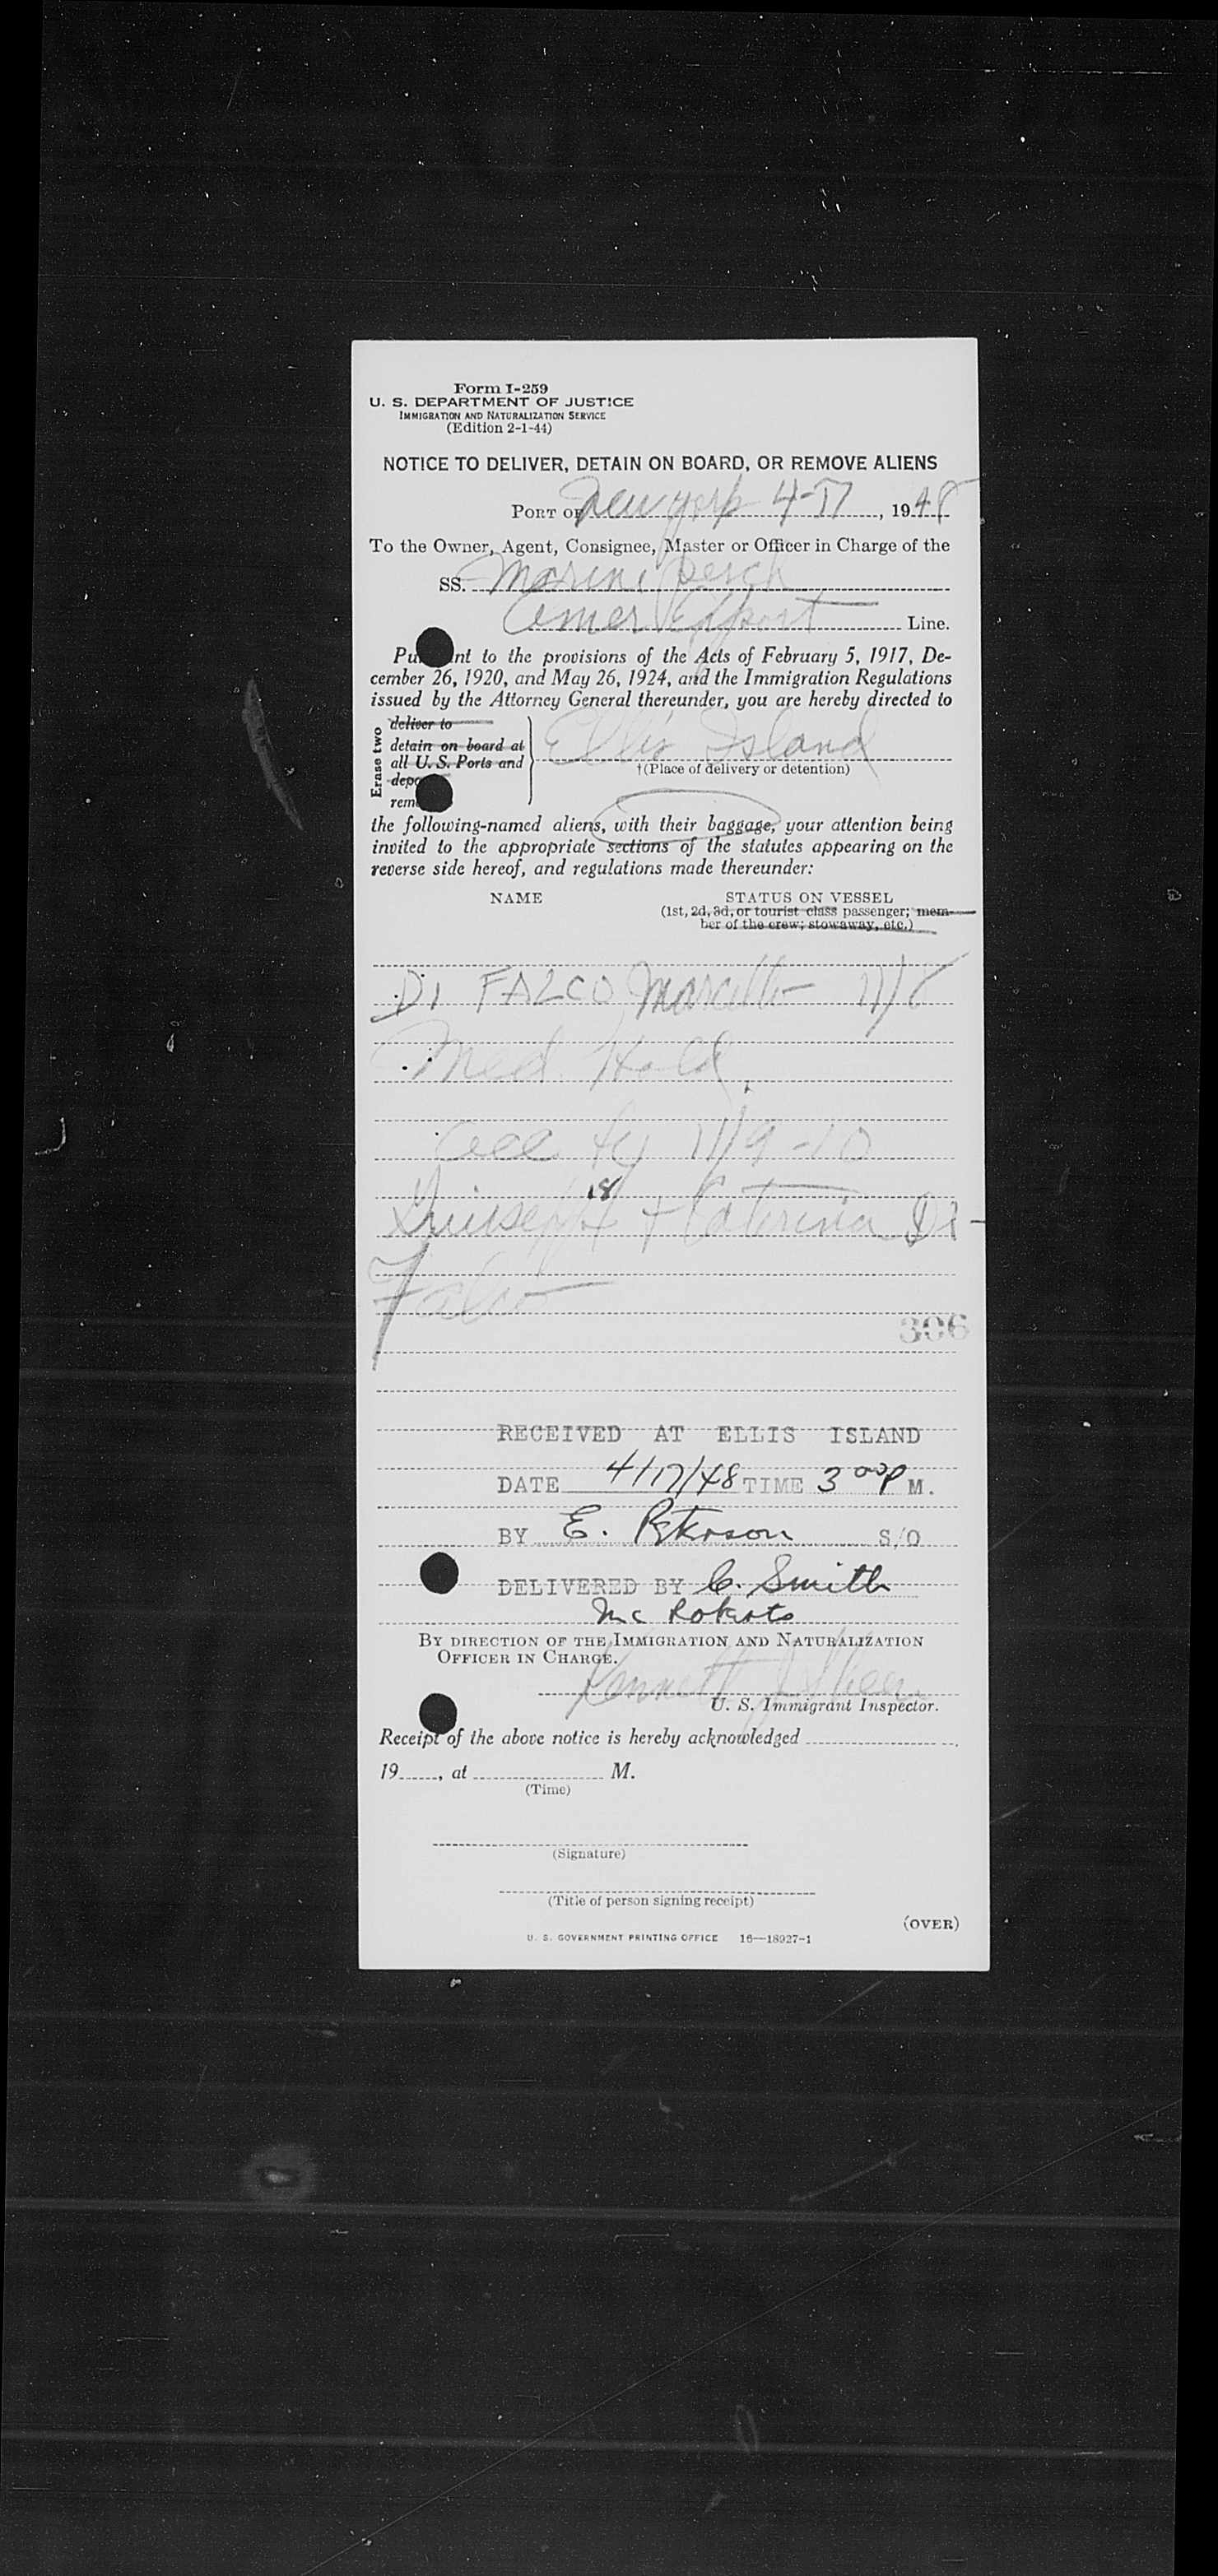 Form I-259
U. S. DEPARTMENT OF JUSTICE
IMMIGRATION AND NATURALIZATION SERVICE
(Edition 2-1-44)
NOTICE TO DELIVER, DETAIN ON BOARD, OR REMOVE ALIENS
PORT OF New York 4-17, 1948
To the Owner, Agent, Consignee, Master or Officer in Charge of the
SS. Marine Perch
Amer Export Line.
Pu nt to the provisions of the Acts of February 5, 1917, De-
cember 26, 1920, and May 26, 1924, and the Immigration Regulations
issued by the Attorney General thereunder, you are hereby directed to
Erase two
deliver to
detain on board at
all U. S. Ports and
depo
rem
Ellis Island
†(Place of delivery or detention)
the following-named aliens, with their baggage, your attention being
invited to the appropriate sections of the statutes appearing on the
reverse side hereof, and regulations made thereunder:
NAME STATUS ON VESSEL
(1st, 2d, 3d, or tourist class passenger; mem-
ber of the crew; stowaway, etc.)
Di FALCO Marcello 11/8
Med. Hold
acc by 11/9-10
18
Giuseppe + Caterina Di-
Falco
306
RECEIVED AT ELLIS ISLAND
DATE 4/17/48 TIME 3 00 P M.
BY E. Peterson S/O
DELIVERED BY C. Smith
Mc Roberts
BY DIRECTION OF THE IMMIGRATION AND NATURALIZATION
OFFICER IN CHARGE.
Kenneth
U. S. Immigrant Inspector.
Receipt of the above notice is hereby acknowledged
19 , at M.
(Time)
(Signature)
(Title of person signing receipt)
(OVER)
U. S. GOVERNMENT PRINTING OFFICE 16—18927-1